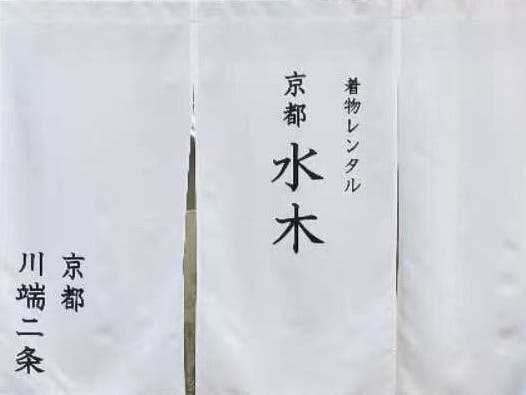 着物レンタル
京都水木
京都
川端二条